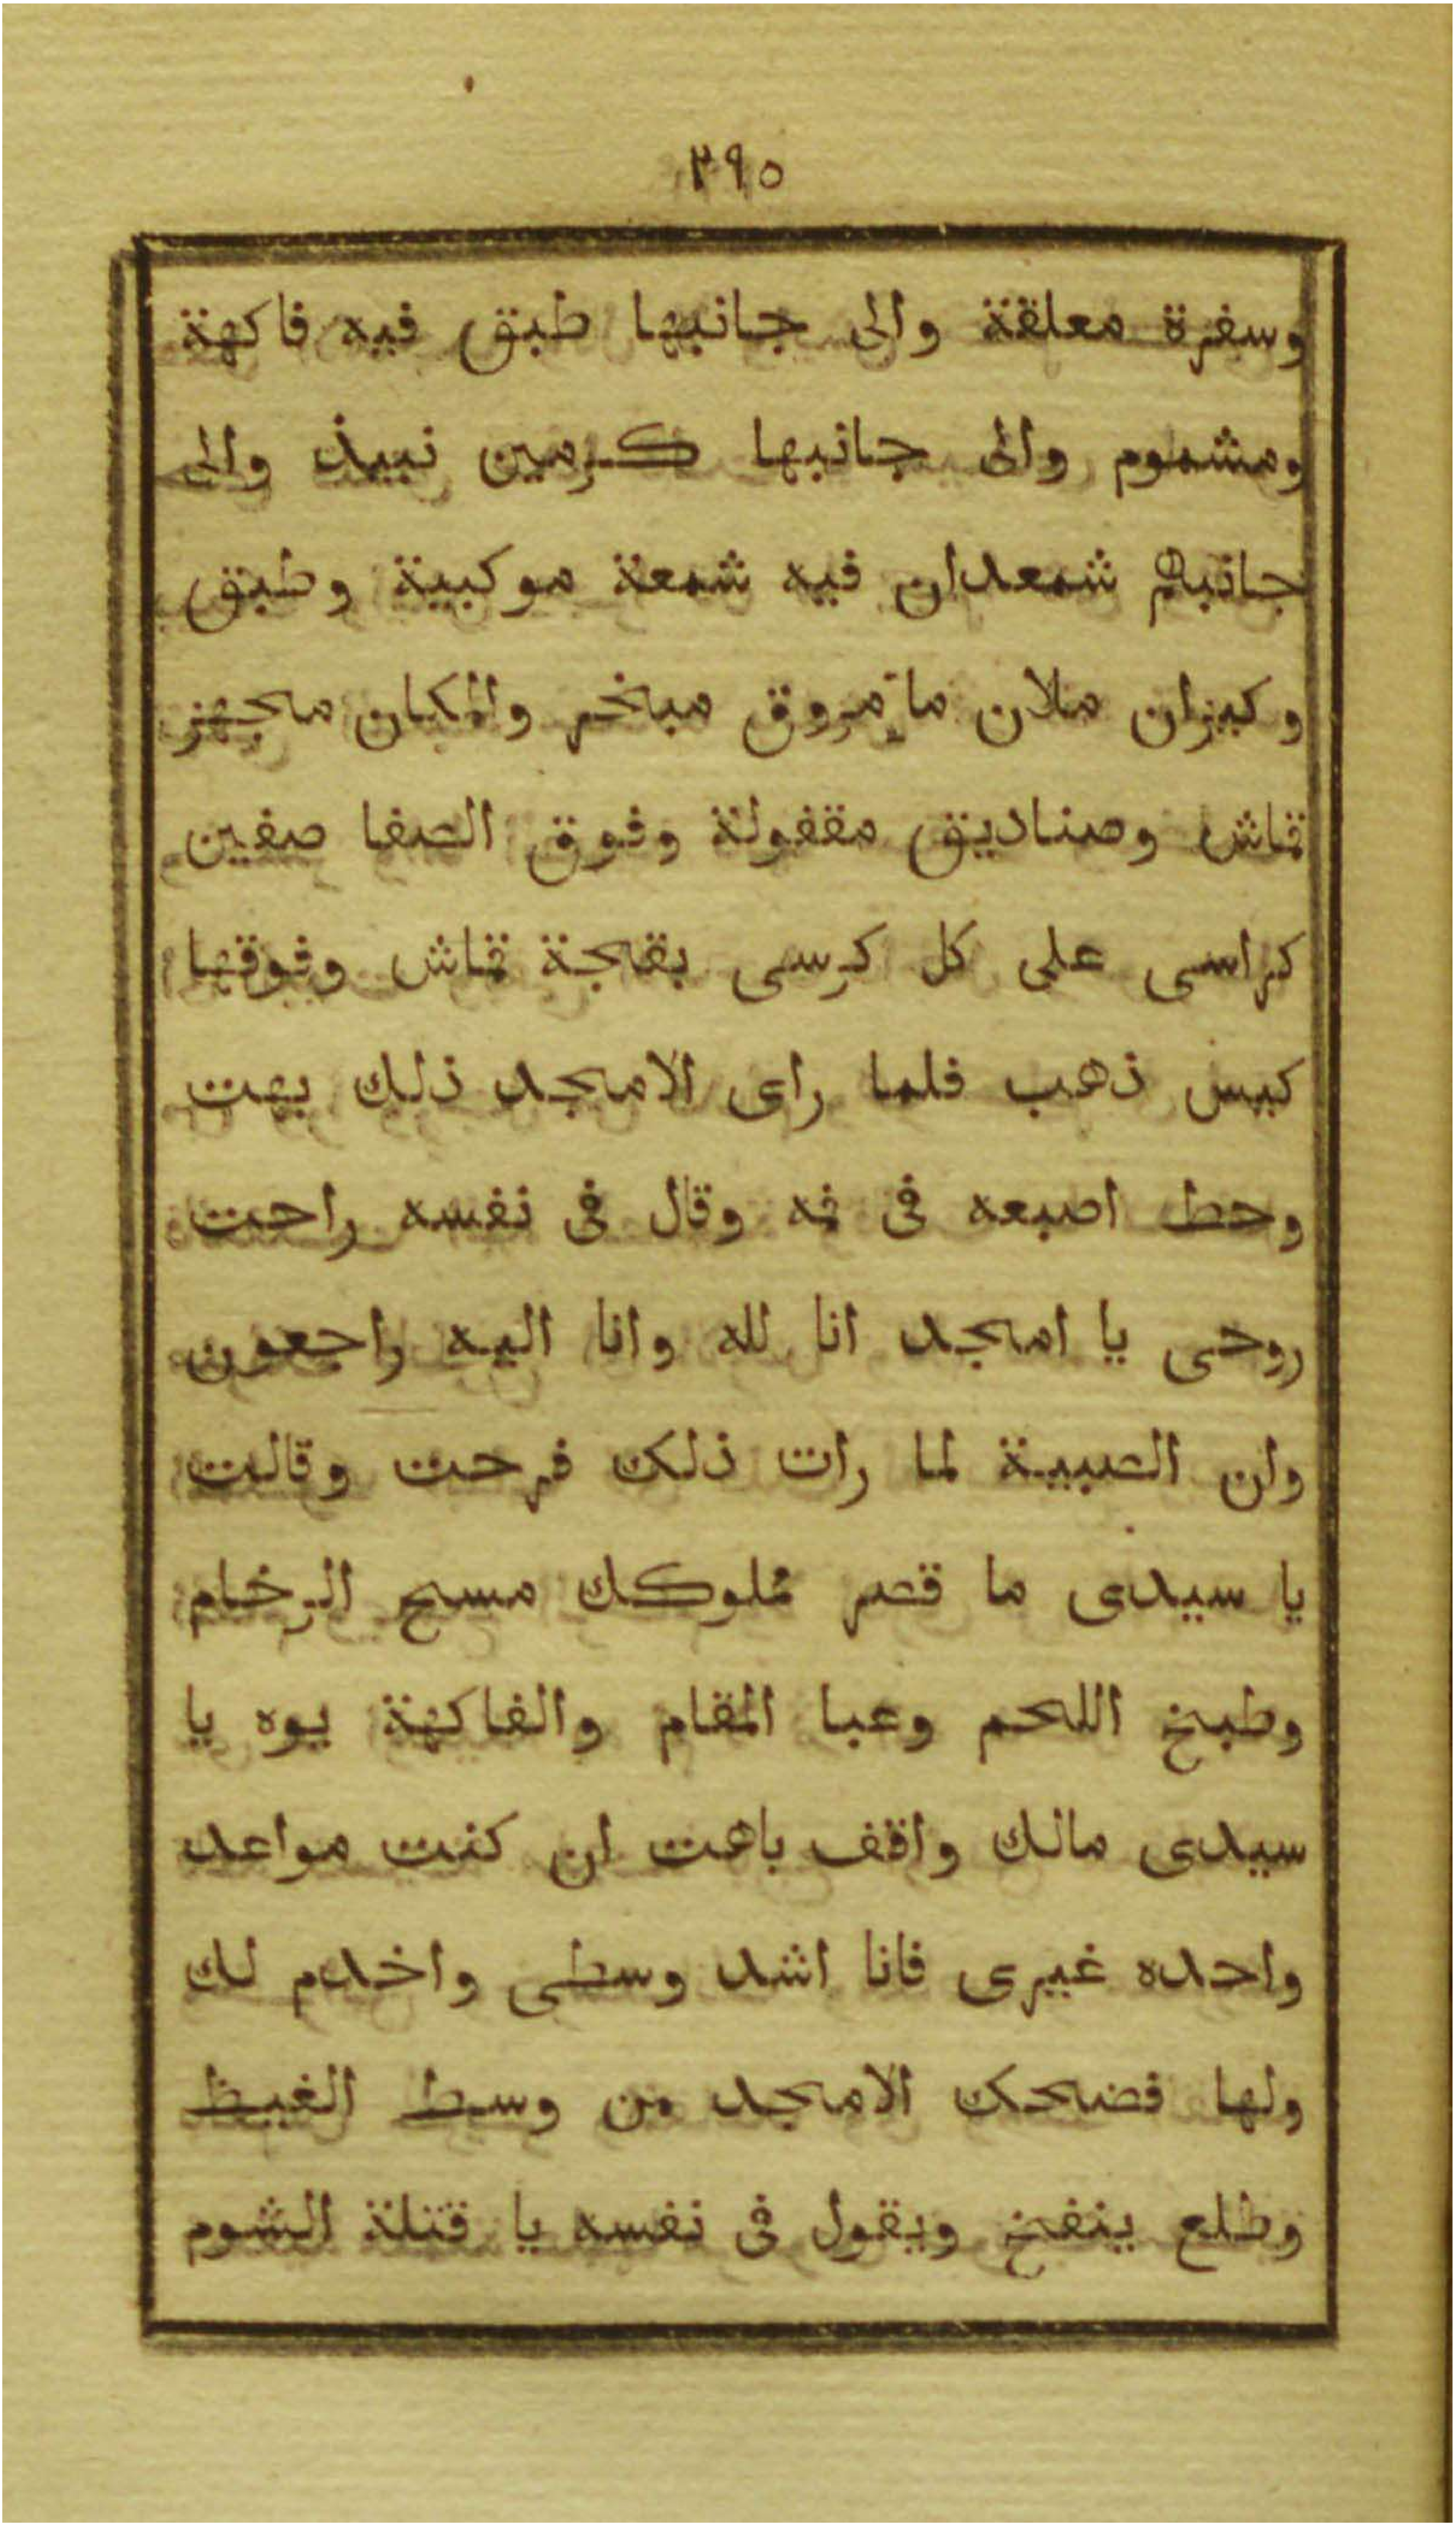 ٢٩٥
وسفرة معلقة والى جانبها طبق فيه فاكهة
ومشموم والى جانبها كرمين نبيذ والى
جانبهم شمعدان فيه شمعة موكبية وطبق
وكيزان ملان ماء مروق مبخر والمكان مجهز
قماش وصناديق مقفولة وفوق الصفا صفين
كراسى على كل كرسى بقجة قماش وفوقها
كيس ذهب فلما راى الامجد ذلك بهت
وحط اصبعه فى فمه وقال فى نفسه راحت
روحى يا امجد انا لله وانا اليه راجعون
وان الصبية لما رات ذلك فرحت وقالت
يا سيدى ما قصر مملوكك مسح الرخام
وطبخ اللحم وعبا المقام والفاكهة يوه يا
سيدى مالك واقف باهت ان كنت مواعد
واحده غيرى فانا اشد وسطى واخدم لك
ولها فضحك الامجد من وسط الغيظ
وطلع ينفخ ويقول فى نفسه يا قتلة الشوم